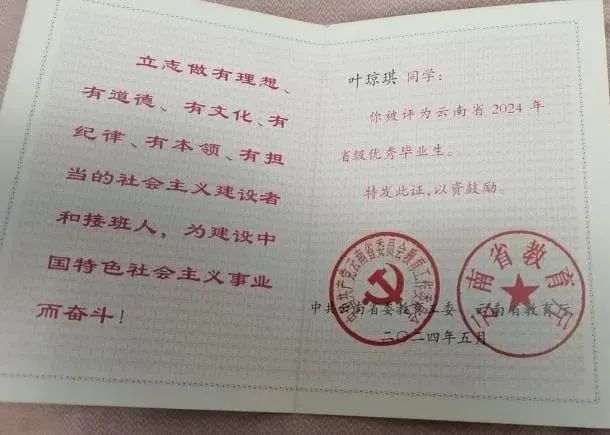 立志做有理想、
有道德、有文化、有
纪律、有本领、有担
当的社会主义建设者
和接班人，为建设中
国特色社会主义事业
而奋斗！
叶琼琪 同学：
你被评为云南省 2024 年
省级优秀毕业生。
特发此证，以资鼓励。
中国共产党云南省委员会教育工作委员会
云南省教育厅
中共云南省委教育工委 云南省教育厅
二〇二四年五月